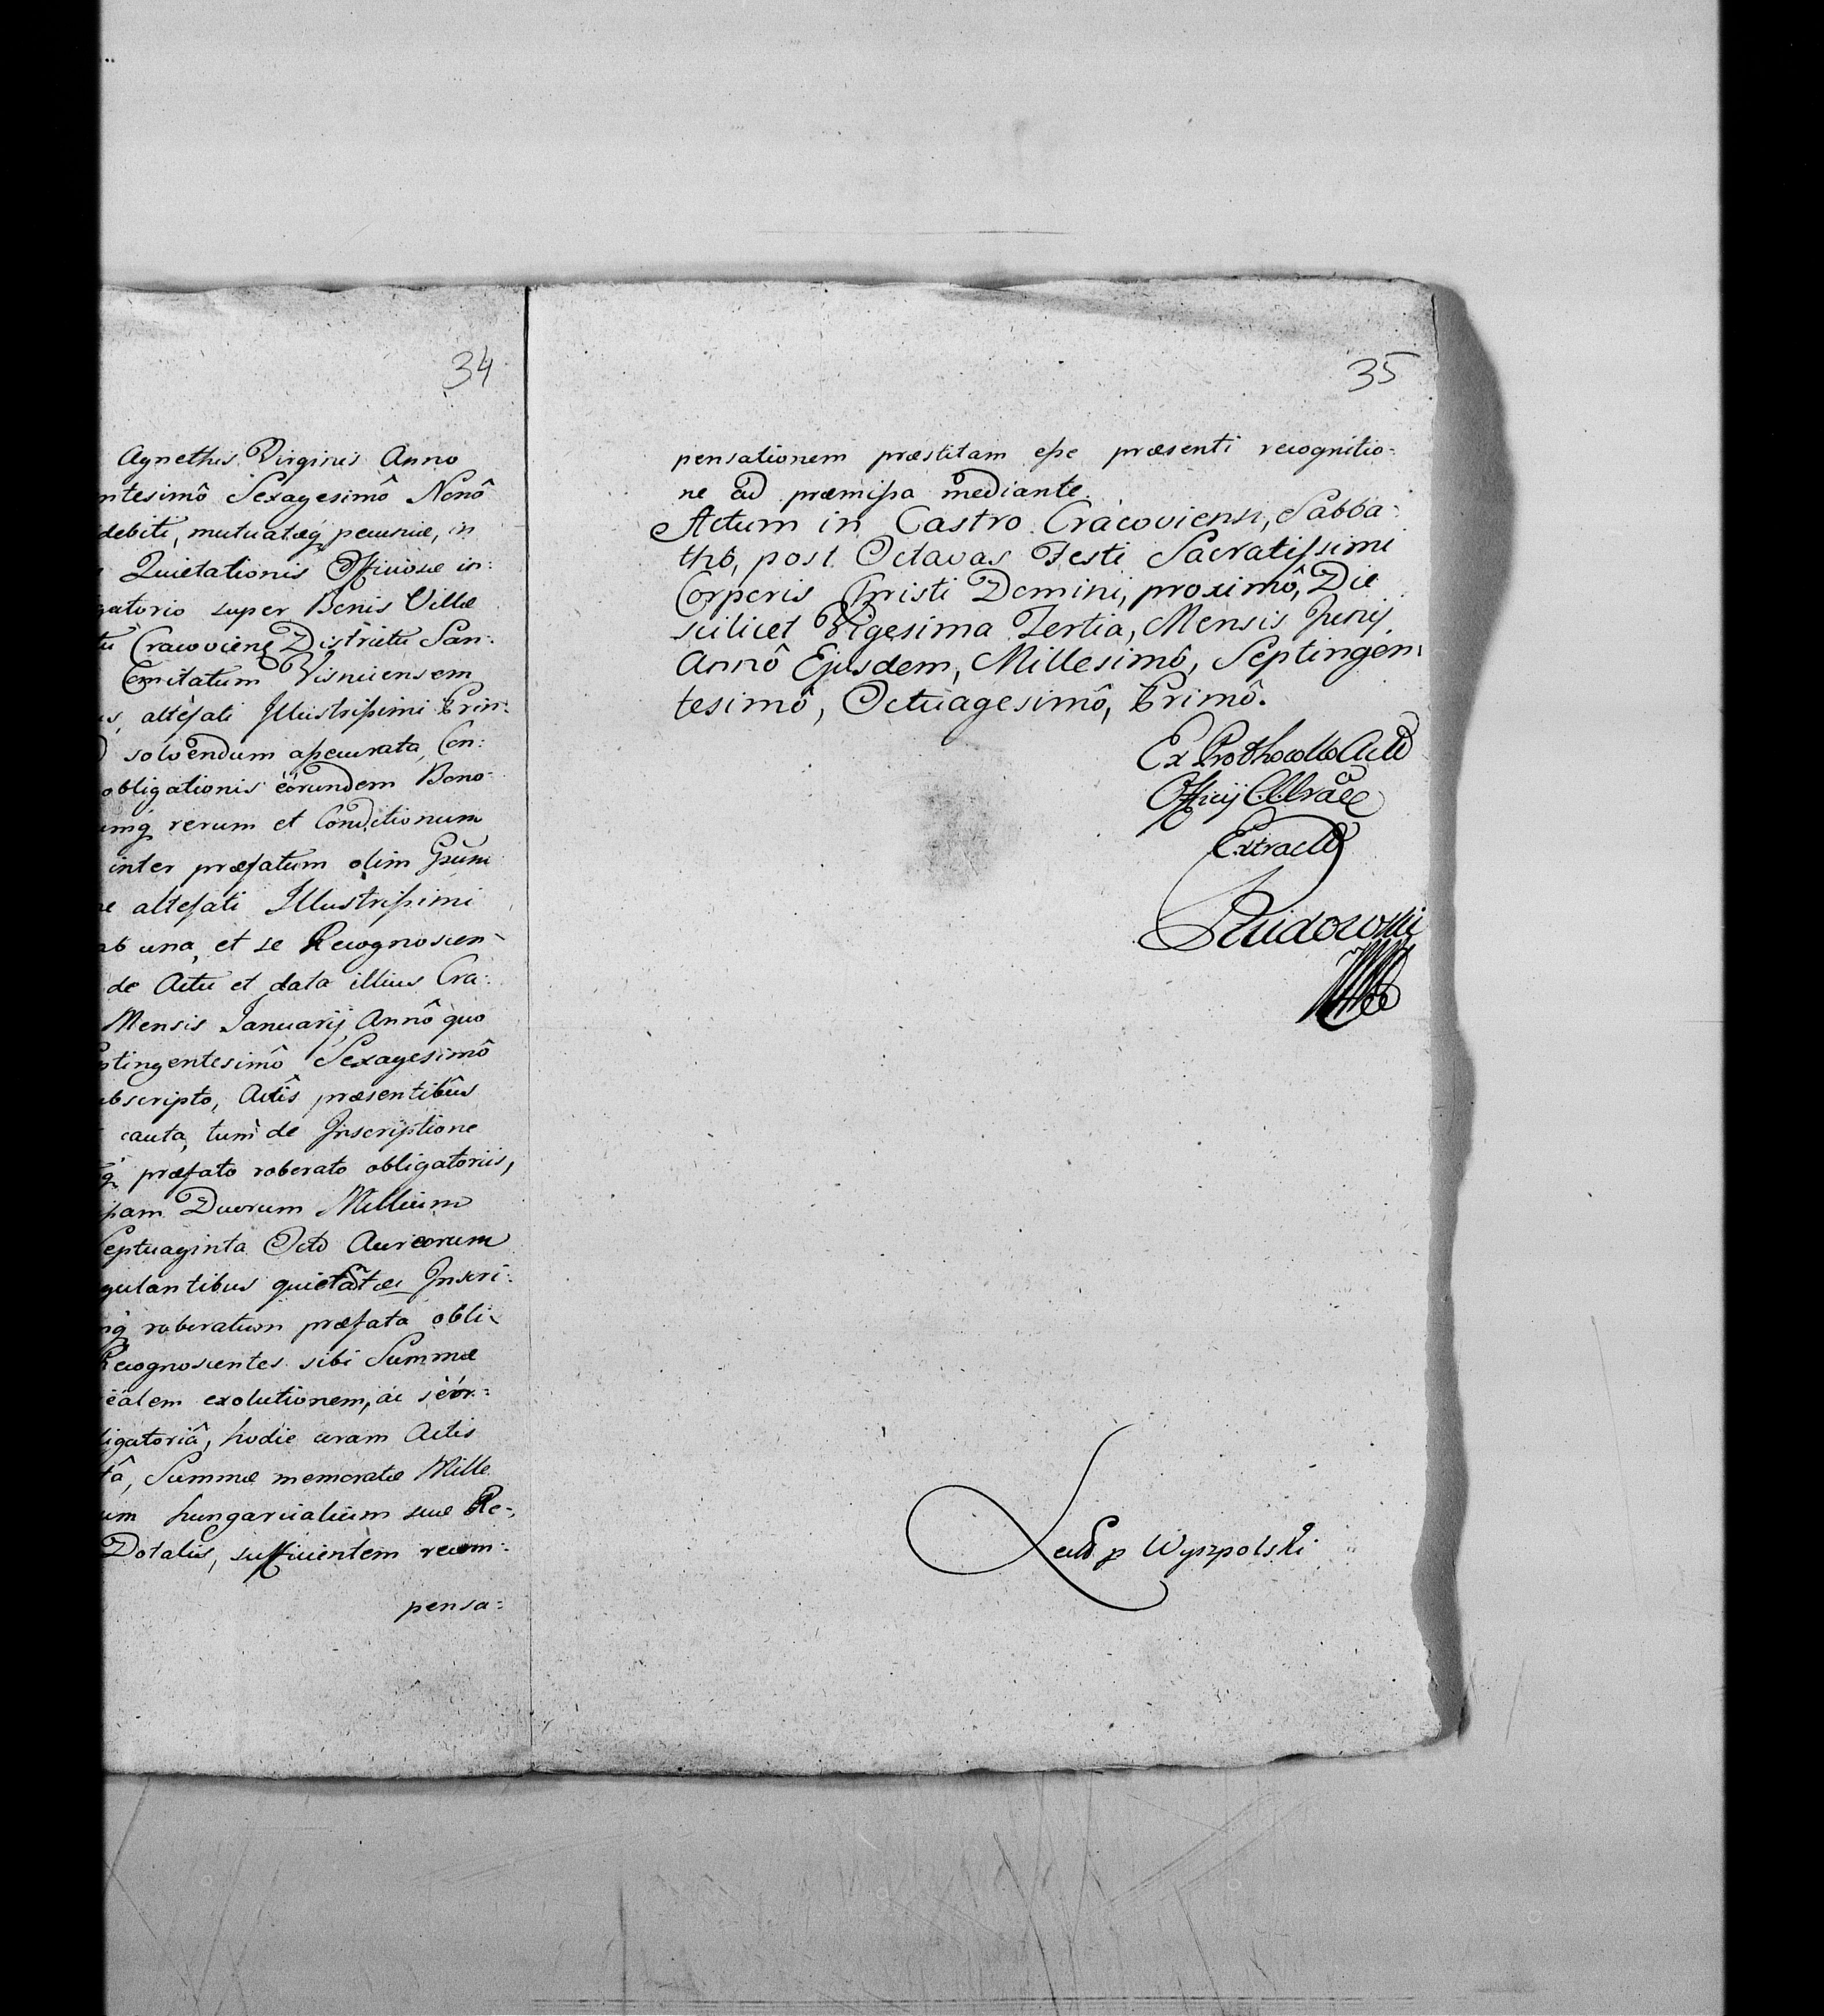 34
Agnethis Virginis Anno
ntesimô Sexagesimô Nonô
debiti, mutuatæq pecuniæ, in
Quietationis Officiosæ in:
gatorio super Bonis Villæ
tu Cracovienẽ Districtu San:
Comitatum Visniciensem
altefati Illustrissimi Prin:
solvendum assecurata, Con:
obligationis eorundem Bono-
umq rerum et Conditionum
inter præfatum olim Gsũm
altefati Illustrissimi
ab una, et se Recognoscen-
de Actu et data illius Cra:
Mensis Januarij Annô quo
ptingentesimô Sexagesimô
bscripto, Actis præsentibus
cauta, tum de Inscriptione
præfato roborato obligatoriis,
Duorum Millium
Septuaginta Octo Aureorum
gulantibus quietatæ Inscri:
roboratum præfata obli-
Recognoscentes sibi Summæ
ealem exolutionem, ac
ligatoriâ, hodie coram Actis
tâ, Summæ memoratæ Mille
um hungaricalium suæ Re-
Dotalis, sufficientem recom:
pensa:
35
pensationem præstitam esse præsenti recognitio-
ne ad præmissa mediante.
Actum in Castro Cracoviensi, Sabba-
thô, post Octavas Festi Sacratissimi
Corporis Christi Domini, proximô, Die
scilicet Vigesima Tertia, Mensis Junij
Annô Ejusdem, Millesimô, Septingen:
tesimô, Octuagesimô, Primô.
Ex Prothocollo Act
Officij
Extract
Lect p Wyszpolski